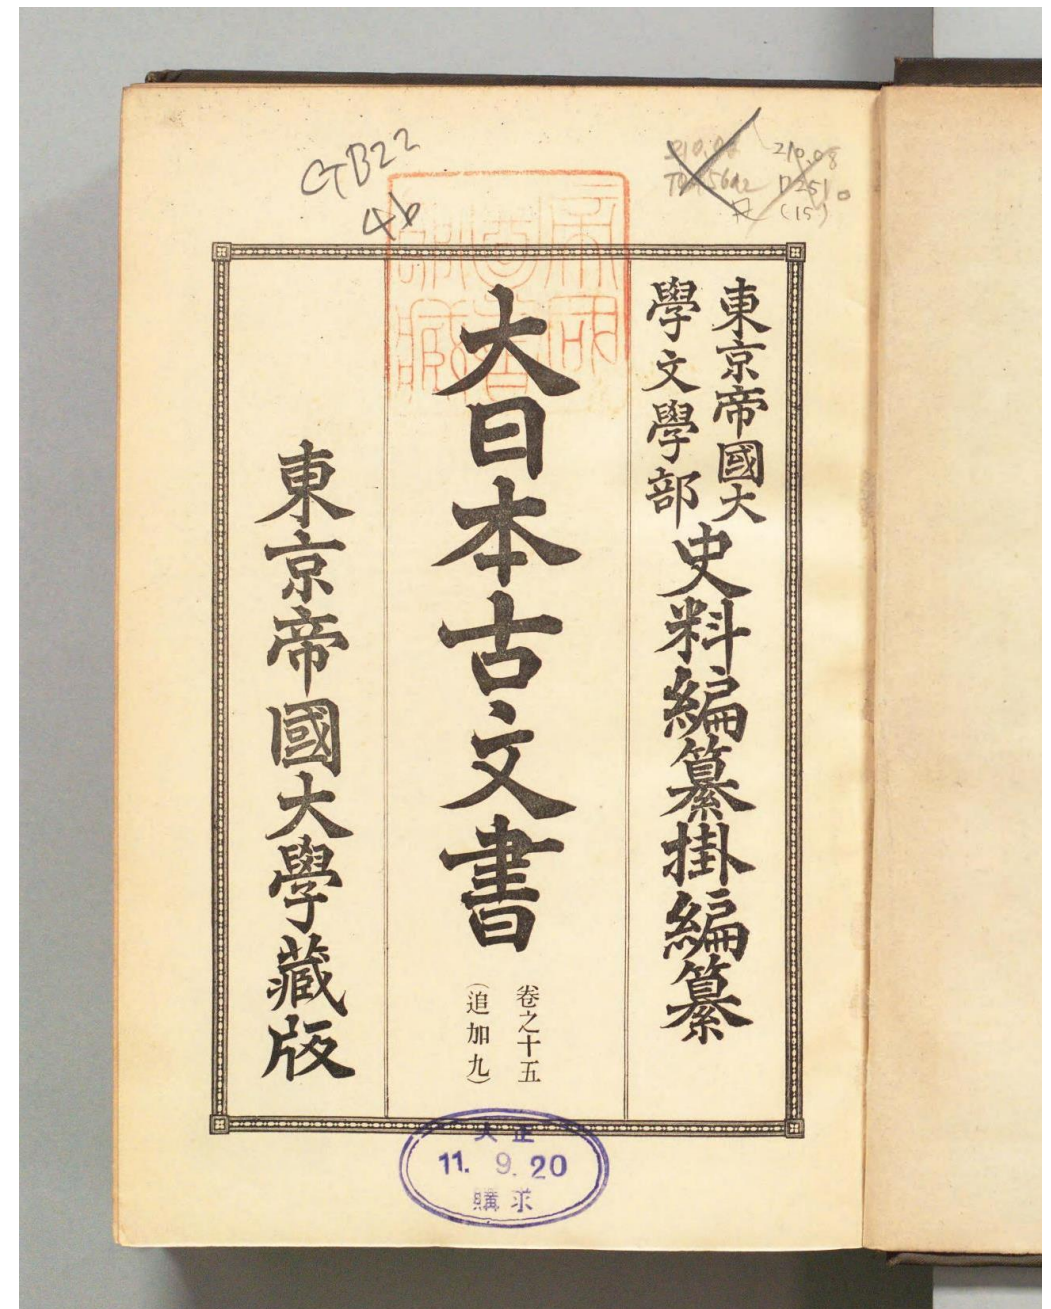 GB22
46
210.08
D251
(15)
東京帝國大
學文學部
史料編纂掛編纂
大日本古文書
卷之十五
(追加九)
東京帝國大學藏版
大正
11. 9. 20
購求